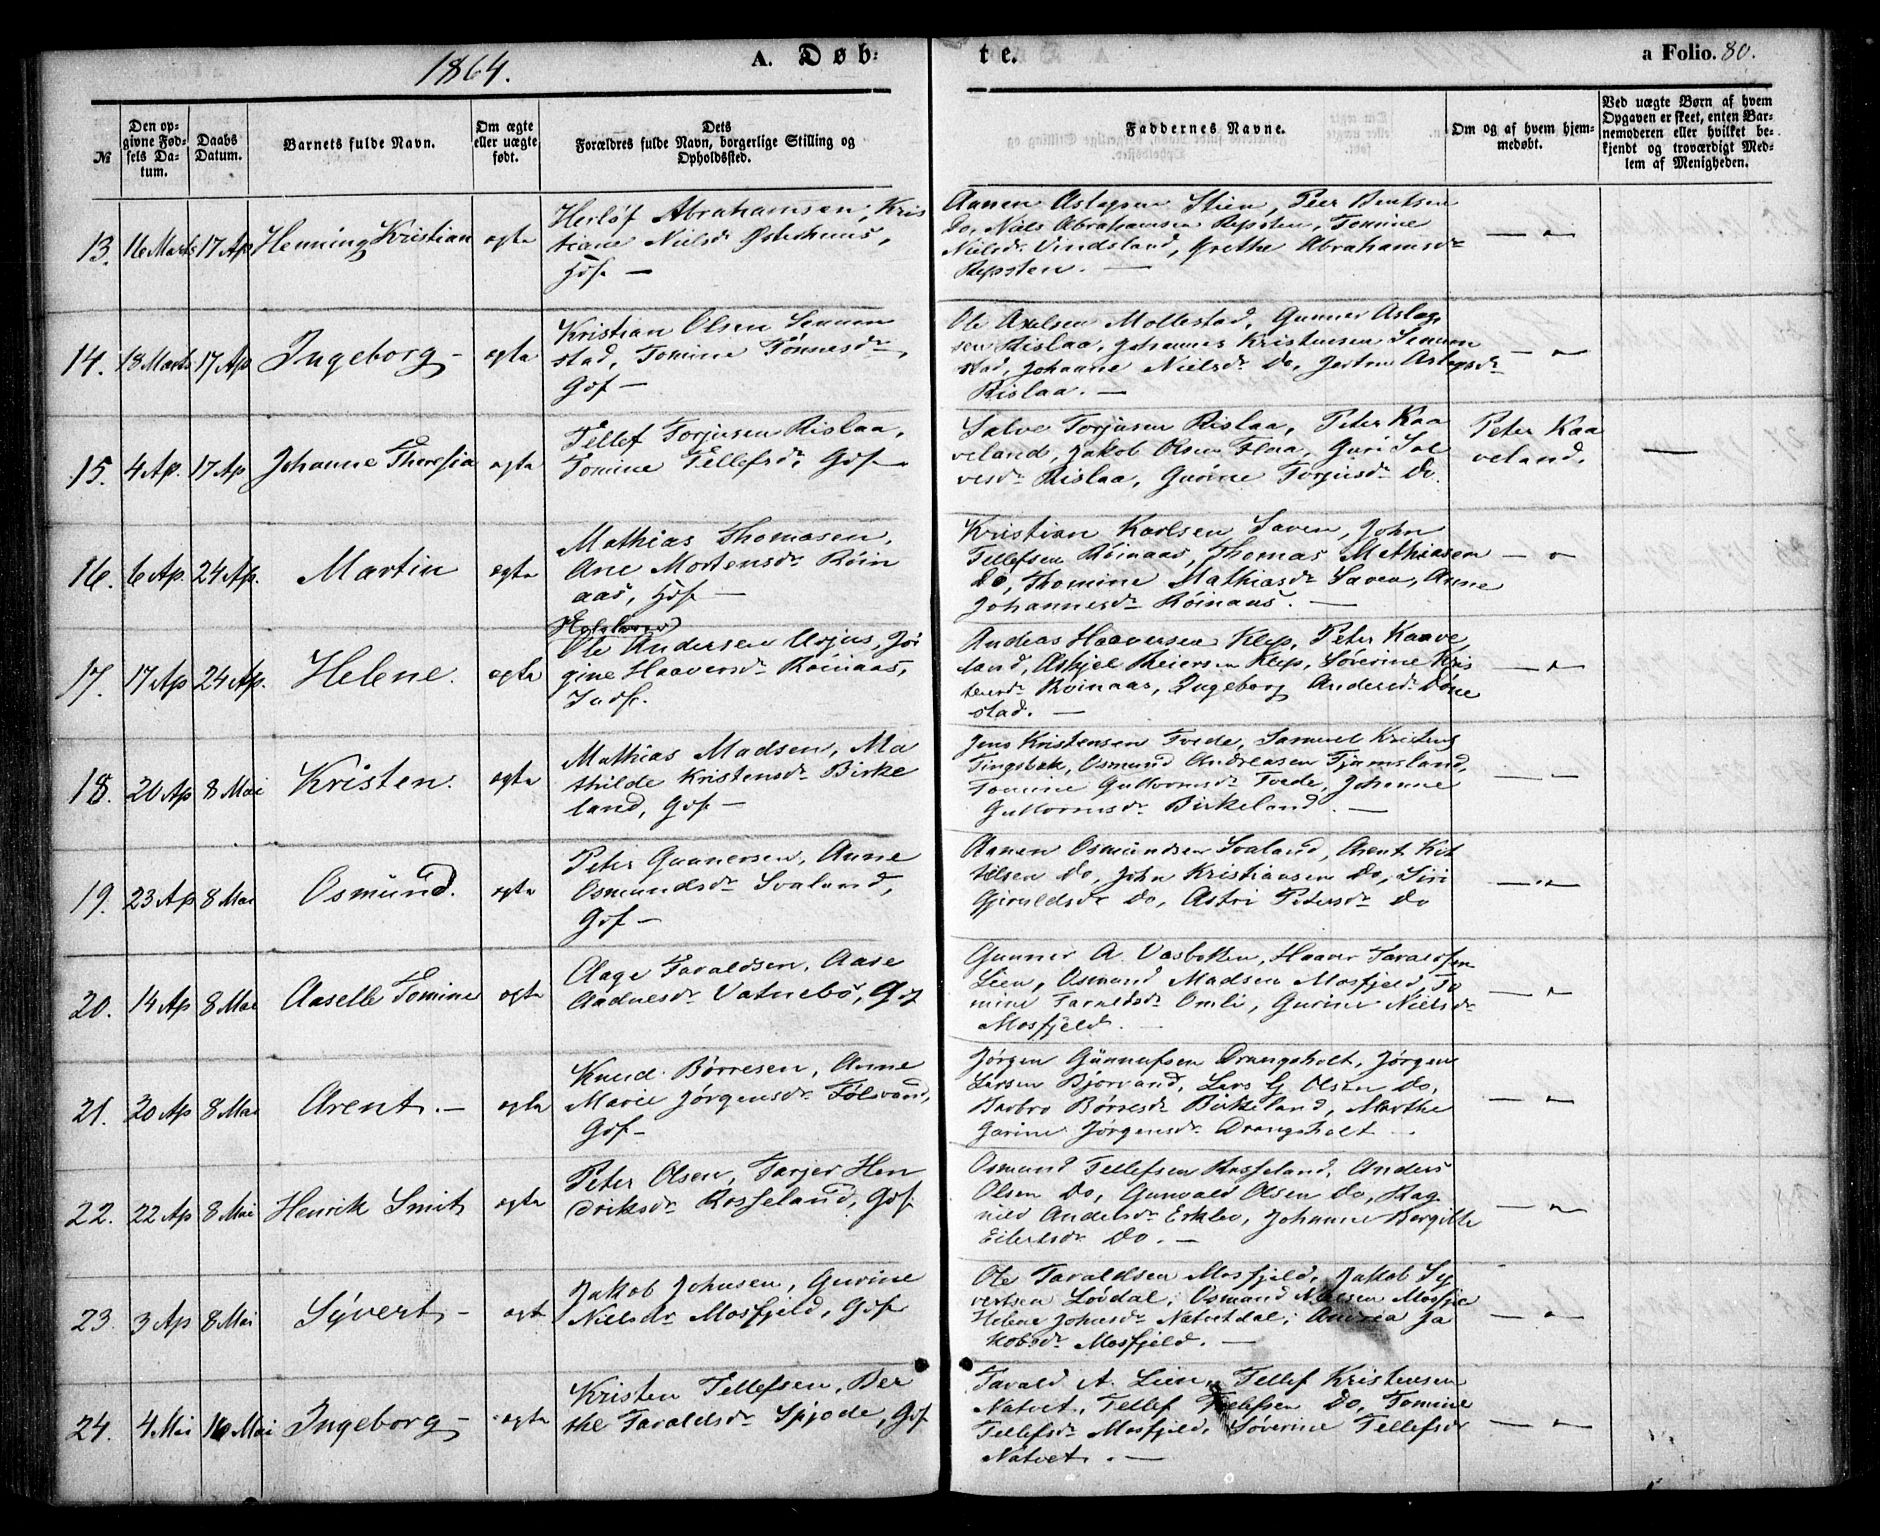 1864.
A. Døb=
te.
a Folio. 80.
№
Den op=
givne Fød=
sels Da=
tum.
Daabs
Datum.
Barnets fulde Navn.
Om ægte
eller uægte
født.
Dets
Forældres fulde Navn, borgerlige Stilling og
Opholdssted.
Faddernes Navne.
Om og af hvem hjem=
medøbt.
Ved uægte Børn af hvem
Opgaven er skeet, enten Bar=
nemoderen eller hvilket be=
kjendt og troværdigt Med=
lem af Menigheden.
13. 16 Marts 17 Ap Henning Kristian ægte
Herlof Abrahamsen, Kris
tiane Nielsdr Østerhuus,
Hdsf. —
Aanen Aslagsen Stien, Peer Bentsen
Do, Niels Abrahamsen Repsten, Tomine
Nielsdr Vindsland, Grethe Abrahamsdr
Repsten. —
14. 18 Marts 17 Ap Ingeborg — ægte
Kristian Olsen Sennum
stad, Tomine Tønnesdr,
Gdsf —
Ole Axelsen Mollestad, Gunner Aslag
sen Rislaa, Johannes Kristensen Sennum
stad, Johanne Nielsdr Do, Jertru Aslagsdr
Rislaa. —
15. 4 Ap. 17 Ap Johanne Theresia ægte
Tellef Torjusen Rislaa,
Tomine Tellefsdr, Gdsf
Salve Torjusen Rislaa, Peter Kaa
veland, Jakob Olsen Flaa, Guri Sal
vesdr Rislaa, Gurine Torjusdr Do.
Peter Kaa
veland.
16. 6 Ap. 24 Ap. Martin ægte
Mathias Thomasen,
Ane Mortensdr Røin
aas, Hdsf —
Kristian Karlsen Saven, John
Tellefsen Røinaas, Thomas Mathiasen
Do, Thomine Mathiasdr Saven, Anne
Johannesdr Røinaas. —
17. 17 Ap 24 Ap. Helene. ægte
Ole Andersen Urjus, Jør
gine Haaversdr Røinaas,
Indf.
Andreas Haaversen Klep, Peter Kaave
land, Askjel Reiersen Klep, Sørine Kris
tensdr Røinaas, Ingeborg Andersdr Døne
stad. —
18. 20 Ap 8 Mai Kristen. ægte
Mathias Madsen, Ma
thilde Kristensdr Birke
land, Gdsf —
Jens Kristensen Tvede, Samuel Kristens
Tingsbek, Osmund Andreasen Fjermsland,
Tomine Guttormsdr Tvede, Johanne
Guttormsdr Birkeland. —
19. 23 Ap 8 Mai Osmund. ægte
Peter Gunnersen, Anne
Osmundsdr Svaland,
Gdsf —
Aanen Osmundsen Svaland, Arent Kit
telsen Do, John Kristiansen Do, Siri
Gjeruldsdr Do, Astri Petersdr Do
20. 14 Ap 8 Mai Aaselle Tomine ægte
Olage Taraldsen, Aase
Aadnesdr Vatnebø, Gdsf
Gunner A. Vasbotten, Haaver Taraldsen
Lien, Osmund Madsen Mosfjeld, To
mine Taraldsdr Omli, Gurine Nielsdr
Mosfjeld. —
21. 20 Ap 8 Mai Arent. — ægte
Knud Børresen, Anne
Marie Jørgensdr Følsvand,
Gdsf —
Jørgen Gunnufsen Drangsholt, Jørgen
Larsen Bjorvand, Lars G. Olsen Do,
Barbro Børresdr Birkeland, Marthe
Garine Jørgensdr Drangsholt —
22. 22 Ap 8 Mai Henrik Smit ægte
Peter Olsen, Tarjer Hen
driksdr Rosseland, Gdsf
Osmund Tellefsen Rosseland, Anders
Olsen Do, Gunvald Olsen Do, Rag
nild Andersdr Erklev, Johanne Bergitte
Eilertsdr Do. —
23. 3 Ap 8 Mai Syvert — ægte
Jakob Johnsen, Gurine
Nielsdr Mosfjeld, Gdsf
Ole Taraldsen Mosfjeld, Jakob Sy
vertsen Løvdal, Osmund Nielsen Mosfje
Helene Johnsdr Natvetdal, Andrea Ja
kobsdr Mosfjeld. —
24. 4 Mai 16 Mai Ingeborg — ægte
Kristen Tellefsen, Ber
the Taraldsdr Spjode, Gdsf
Tarald A. Lien, Tellef Kristensen
Natvet, Tellef Tellefsen Do, Tomine
Tellefsdr Mosfjeld, Søverine Tellefsdr
Natvet. —